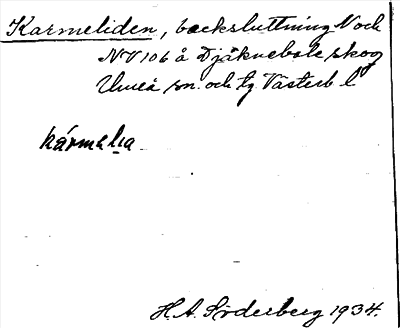 Karmeliden, backsluttning N och
NV 106 å Djäknebole skog
Umeå sn. och tg. Västerb l
kármalıa
H. A. Söderberg 1934.